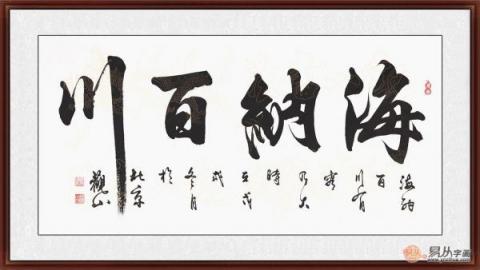 海納百川
海納
百
川有
容
乃大
時
在戊
戌
冬月
於
北京
觀山
易从字画